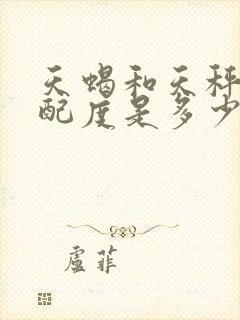 天蝎和天秤
配度是多少
盧菲